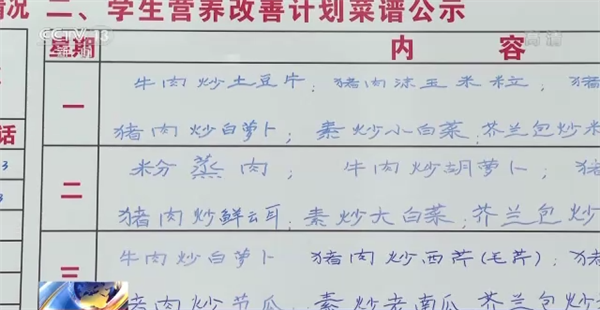 情况 二、学生营养改善计划菜谱公示
CCTV 13
新闻
高清
星期 内容
一 牛肉炒土豆片; 猪肉沫玉米粒; 猪
猪肉炒白萝卜; 素炒小白菜; 芥兰包炒米
话
3
二 粉蒸肉; 牛肉炒胡萝卜; 猪
3
猪肉炒鲜云耳; 素炒大白菜; 芥兰包炒
三 牛肉炒白萝卜 猪肉炒西芹(毛芹); 猪
猪肉炒节瓜; 素炒老南瓜 芥兰包炒